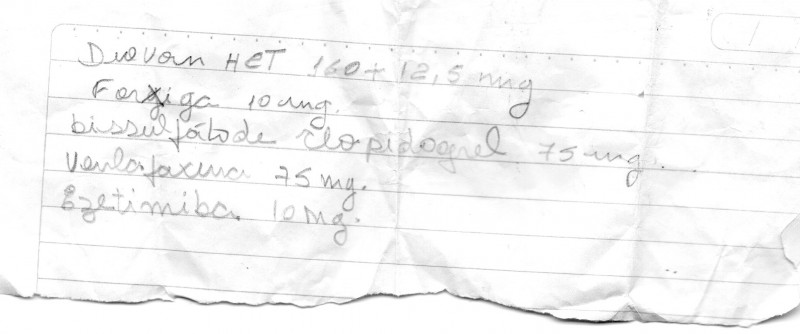 Diovan HCT 160+12,5 mg
Forxiga 10 mg.
bissulfato de clopidogrel 75 mg.
Venlafaxina 75 mg.
Ezetimiba 10 mg.